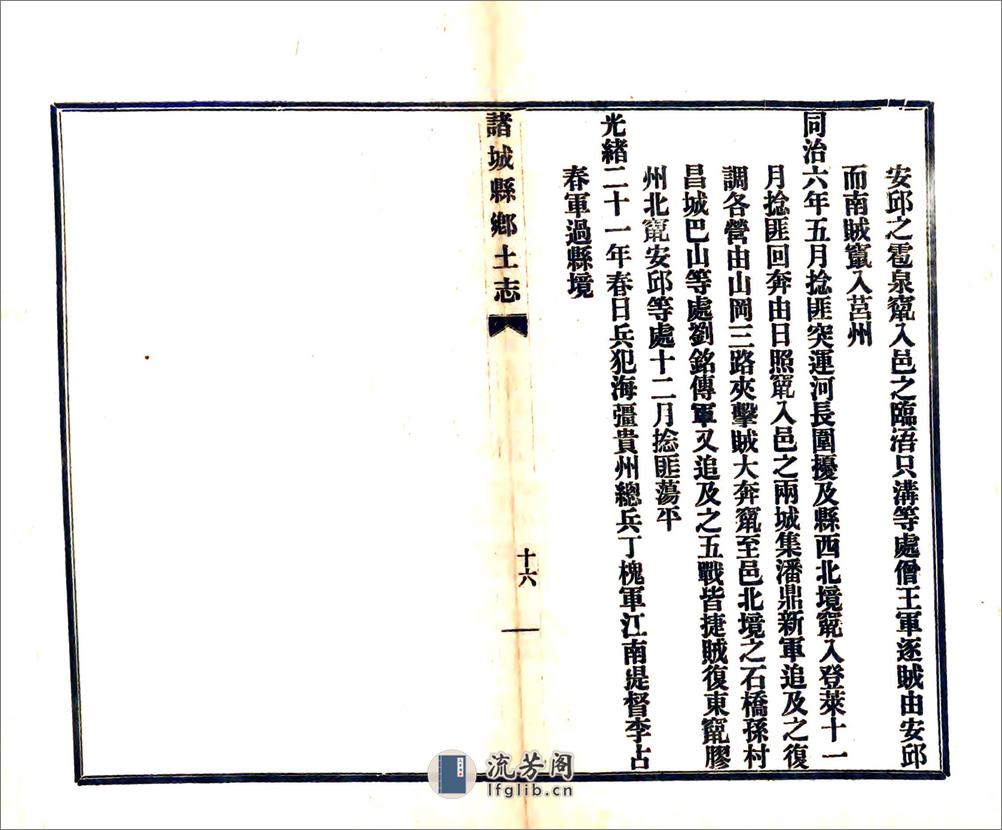 安邱之雹泉竄入邑之臨浯只溝等處僧王軍逐賊由安邱
而南賊竄入莒州
同治六年五月捻匪突運河長圍擾及縣西北境竄入登萊十一
月捻匪回奔由日照竄入邑之兩城集潘鼎新軍追及之復
調各營由山岡三路夾擊賊大奔竄至邑北境之石橋孫村
昌城巴山等處劉銘傳軍又追及之五戰皆捷賊復東竄膠
州北竄安邱等處十二月捻匪蕩平
光緒二十一年春日兵犯海彊貴州總兵丁槐軍江南提督李占
春軍過縣境
諸城縣鄉土志
十六
流芳阁
lfglib.cn